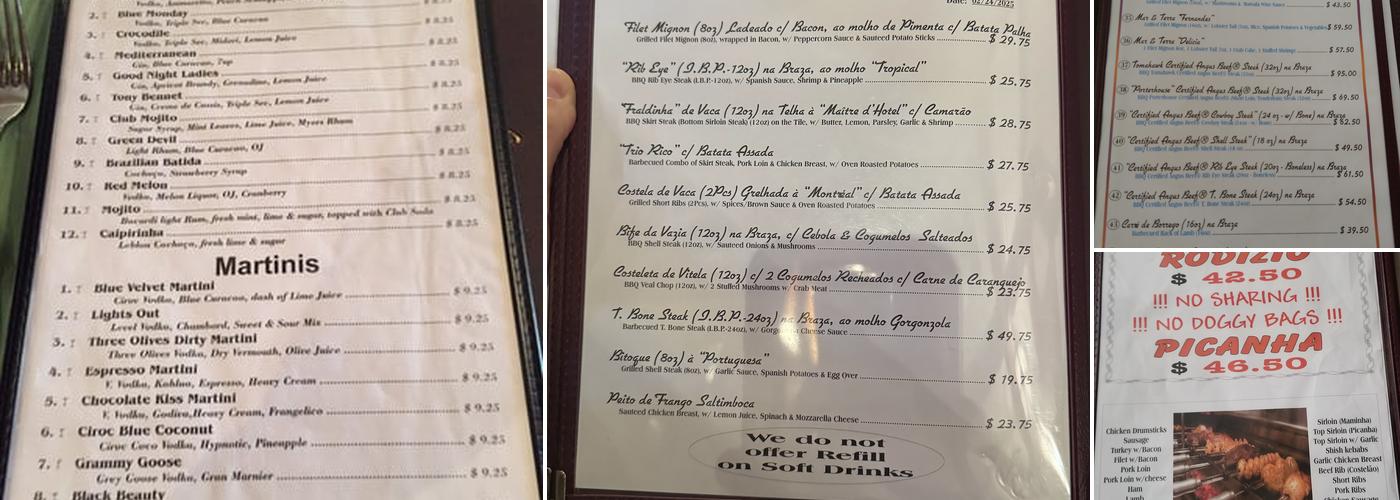 2. Blue Monday
Vodka, Triple Sec, Blue Curacao
3. Crocodile
Vodka, Triple Sec, Midori, Lemon Juice
$ 8.25
4. Mediterranean
Gin, Blue Curacao, 7up
$ 8.25
5. Good Night Ladies
Gin, Apricot Brandy, Grenadine, Lemon Juice
$ 8.25
6. Tony Bennet
Gin, Creme de Cassis, Triple Sec, Lemon Juice
$ 8.25
7. Club Mojito
Sugar Syrup, Mint Leaves, Lime Juice, Myers Rhum
$ 8.25
8. Green Devil
Light Rhum, Blue Curacao, OJ
$ 8.25
9. Brazilian Batida
Cachaça, Strawberry Syrup
$ 8.25
10. Red Melon
Vodka, Melon Liquor, OJ, Cranberry
$ 8.25
11. Mojito
Bacardi light Rum, fresh mint, lime & sugar, topped with Club Soda
$ 8.25
12. Caipirinha
Leblon Cachaça, fresh lime & sugar
Martinis
1. Blue Velvet Martini
Ciroc Vodka, Blue Curacao, dash of Lime Juice $ 9.25
2. Lights Out
Level Vodka, Chambord, Sweet & Sour Mix $ 9.25
3. Three Olives Dirty Martini
Three Olives Vodka, Dry Vermouth, Olive Juice $ 9.25
4. Espresso Martini
V. Vodka, Kahlua, Espresso, Heavy Cream $ 9.25
5. Chocolate Kiss Martini
V. Vodka, Godiva, Heavy Cream, Frangelico $ 9.25
6. Ciroc Blue Coconut
Ciroc Coco Vodka, Hypnotic, Pineapple $ 9.25
7. Grammy Goose
Grey Goose Vodka, Gran Marnier $ 9.25
8. Black Beauty
Date: 02/24/2025
Filet Mignon (8oz) Ladeado c/ Bacon, ao molho de Pimenta c/ Batata Palha
Grilled Filet Mignon (8oz), wrapped in Bacon, w/ Peppercorn Sauce & Sauteed Potato Sticks $ 29.75
"Rib Eye" (I.B.P.-12oz) na Braza, ao molho "Tropical"
BBQ Rib Eye Steak (I.B.P.-12oz) w/ Spanish Sauce, Shrimp & Pineapple $ 25.75
"Fraldinha" de Vaca (12oz) na Telha à "Maître d'Hotel" c/ Camarão
BBQ Skirt Steak (Bottom Sirloin Steak) (12oz) on the Tile, w/ Butter, Lemon, Parsley, Garlic & Shrimp $ 28.75
"Trio Rico" c/ Batata Assada
Barbecued Combo of Skirt Steak, Pork Loin & Chicken Breast, w/ Oven Roasted Potatoes $ 27.75
Costela de Vaca (2Pcs) Grelhada à "Montréal" c/ Batata Assada
Grilled Short Ribs (2Pcs), w/ Spices/Brown Sauce & Oven Roasted Potatoes $ 25.75
Bife da Vazia (12oz) na Braza, c/ Cebola & Cogumelos Salteados
BBQ Shell Steak (12oz), w/ Sauteed Onions & Mushrooms $ 24.75
Costeleta de Vitela (12oz) c/ 2 Cogumelos Recheados c/ Carne de Caranguejo
BBQ Veal Chop (12oz), w/ 2 Stuffed Mushrooms w/ Crab Meat $ 23.75
T. Bone Steak (I.B.P.-24oz) na Braza, ao molho Gorgonzola
Barbecued T. Bone Steak (I.B.P.-24oz), w/ Gorgonzola Cheese Sauce $ 49.75
Bitoque (8oz) à "Portuguesa"
Grilled Shell Steak (8oz), w/ Garlic Sauce, Spanish Potatoes & Egg Over $ 19.75
Peito de Frango Saltimboca
Sauteed Chicken Breast, w/ Lemon Juice, Spinach & Mozzarella Cheese $ 23.75
We do not
offer Refill
on Soft Drinks
$ 43.50
35 Mar & Terra "Fernandes"
$ 59.50
36 Mar & Terra "Delicia"
1 Filet Mignon 8oz, 1 Lobster Tail 7oz, 1 Crab Cake, 3 Stuffed Shrimps $ 57.50
37 Tomahawk Certified Angus Beef® Steak (32oz) na Braza
$ 95.00
38 "Porterhouse" Certified Angus Beef® Steak (32oz) na Braza
$ 69.50
39 "Certified Angus Beef® Cowboy Steak" (24 oz - w/ Bone) na Braza
$ 62.50
40 "Certified Angus Beef® Shell Steak" (18 oz) na Braza
$ 49.50
41 "Certified Angus Beef® Rib Eye Steak (20oz - Boneless) na Braza
$ 61.50
42 "Certified Angus Beef® T. Bone Steak (24oz) na Braza
$ 54.50
43 Carré de Borrego (16oz) na Braza
Barbecued Rack of Lamb (16oz) $ 39.50
RODIZIO
$ 42.50
!!! NO SHARING !!!
!!! NO DOGGY BAGS !!!
PICANHA
$ 46.50
Chicken Drumsticks
Sausage
Turkey w/Bacon
Filet w/Bacon
Pork Loin
Pork Loin w/cheese
Ham
Lamb
Sirloin (Maminha)
Top Sirloin (Picanha)
Top Sirloin w/ Garlic
Shish kebabs
Garlic Chicken Breast
Beef Rib (Costelão)
Short Ribs
Pork Ribs
Chicken Sausage